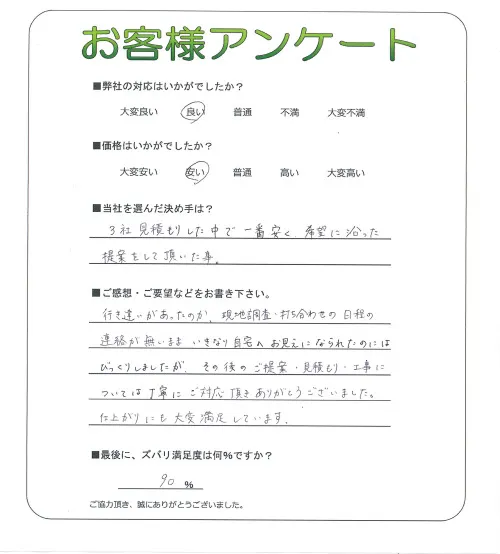 お客様アンケート
■弊社の対応はいかがでしたか？
大変良い 良い 普通 不満 大変不満
■価格はいかがでしたか？
大変安い 安い 普通 高い 大変高い
■当社を選んだ決め手は？
3社見積もりした中で一番安く、希望に沿った
提案をして頂いた事。
■ご感想・ご要望などをお書き下さい。
行き違いがあったのか、現地調査・打ち合わせの日程の
連絡が無いまま いきなり自宅へお見えになられたのには
びっくりしましたが、その後のご提案・見積もり・工事に
ついては丁寧にご対応頂きありがとうございました。
仕上がりにも大変満足しています。
■最後に、ズバリ満足度は何%ですか？
90 %
ご協力頂き、誠にありがとうございました。